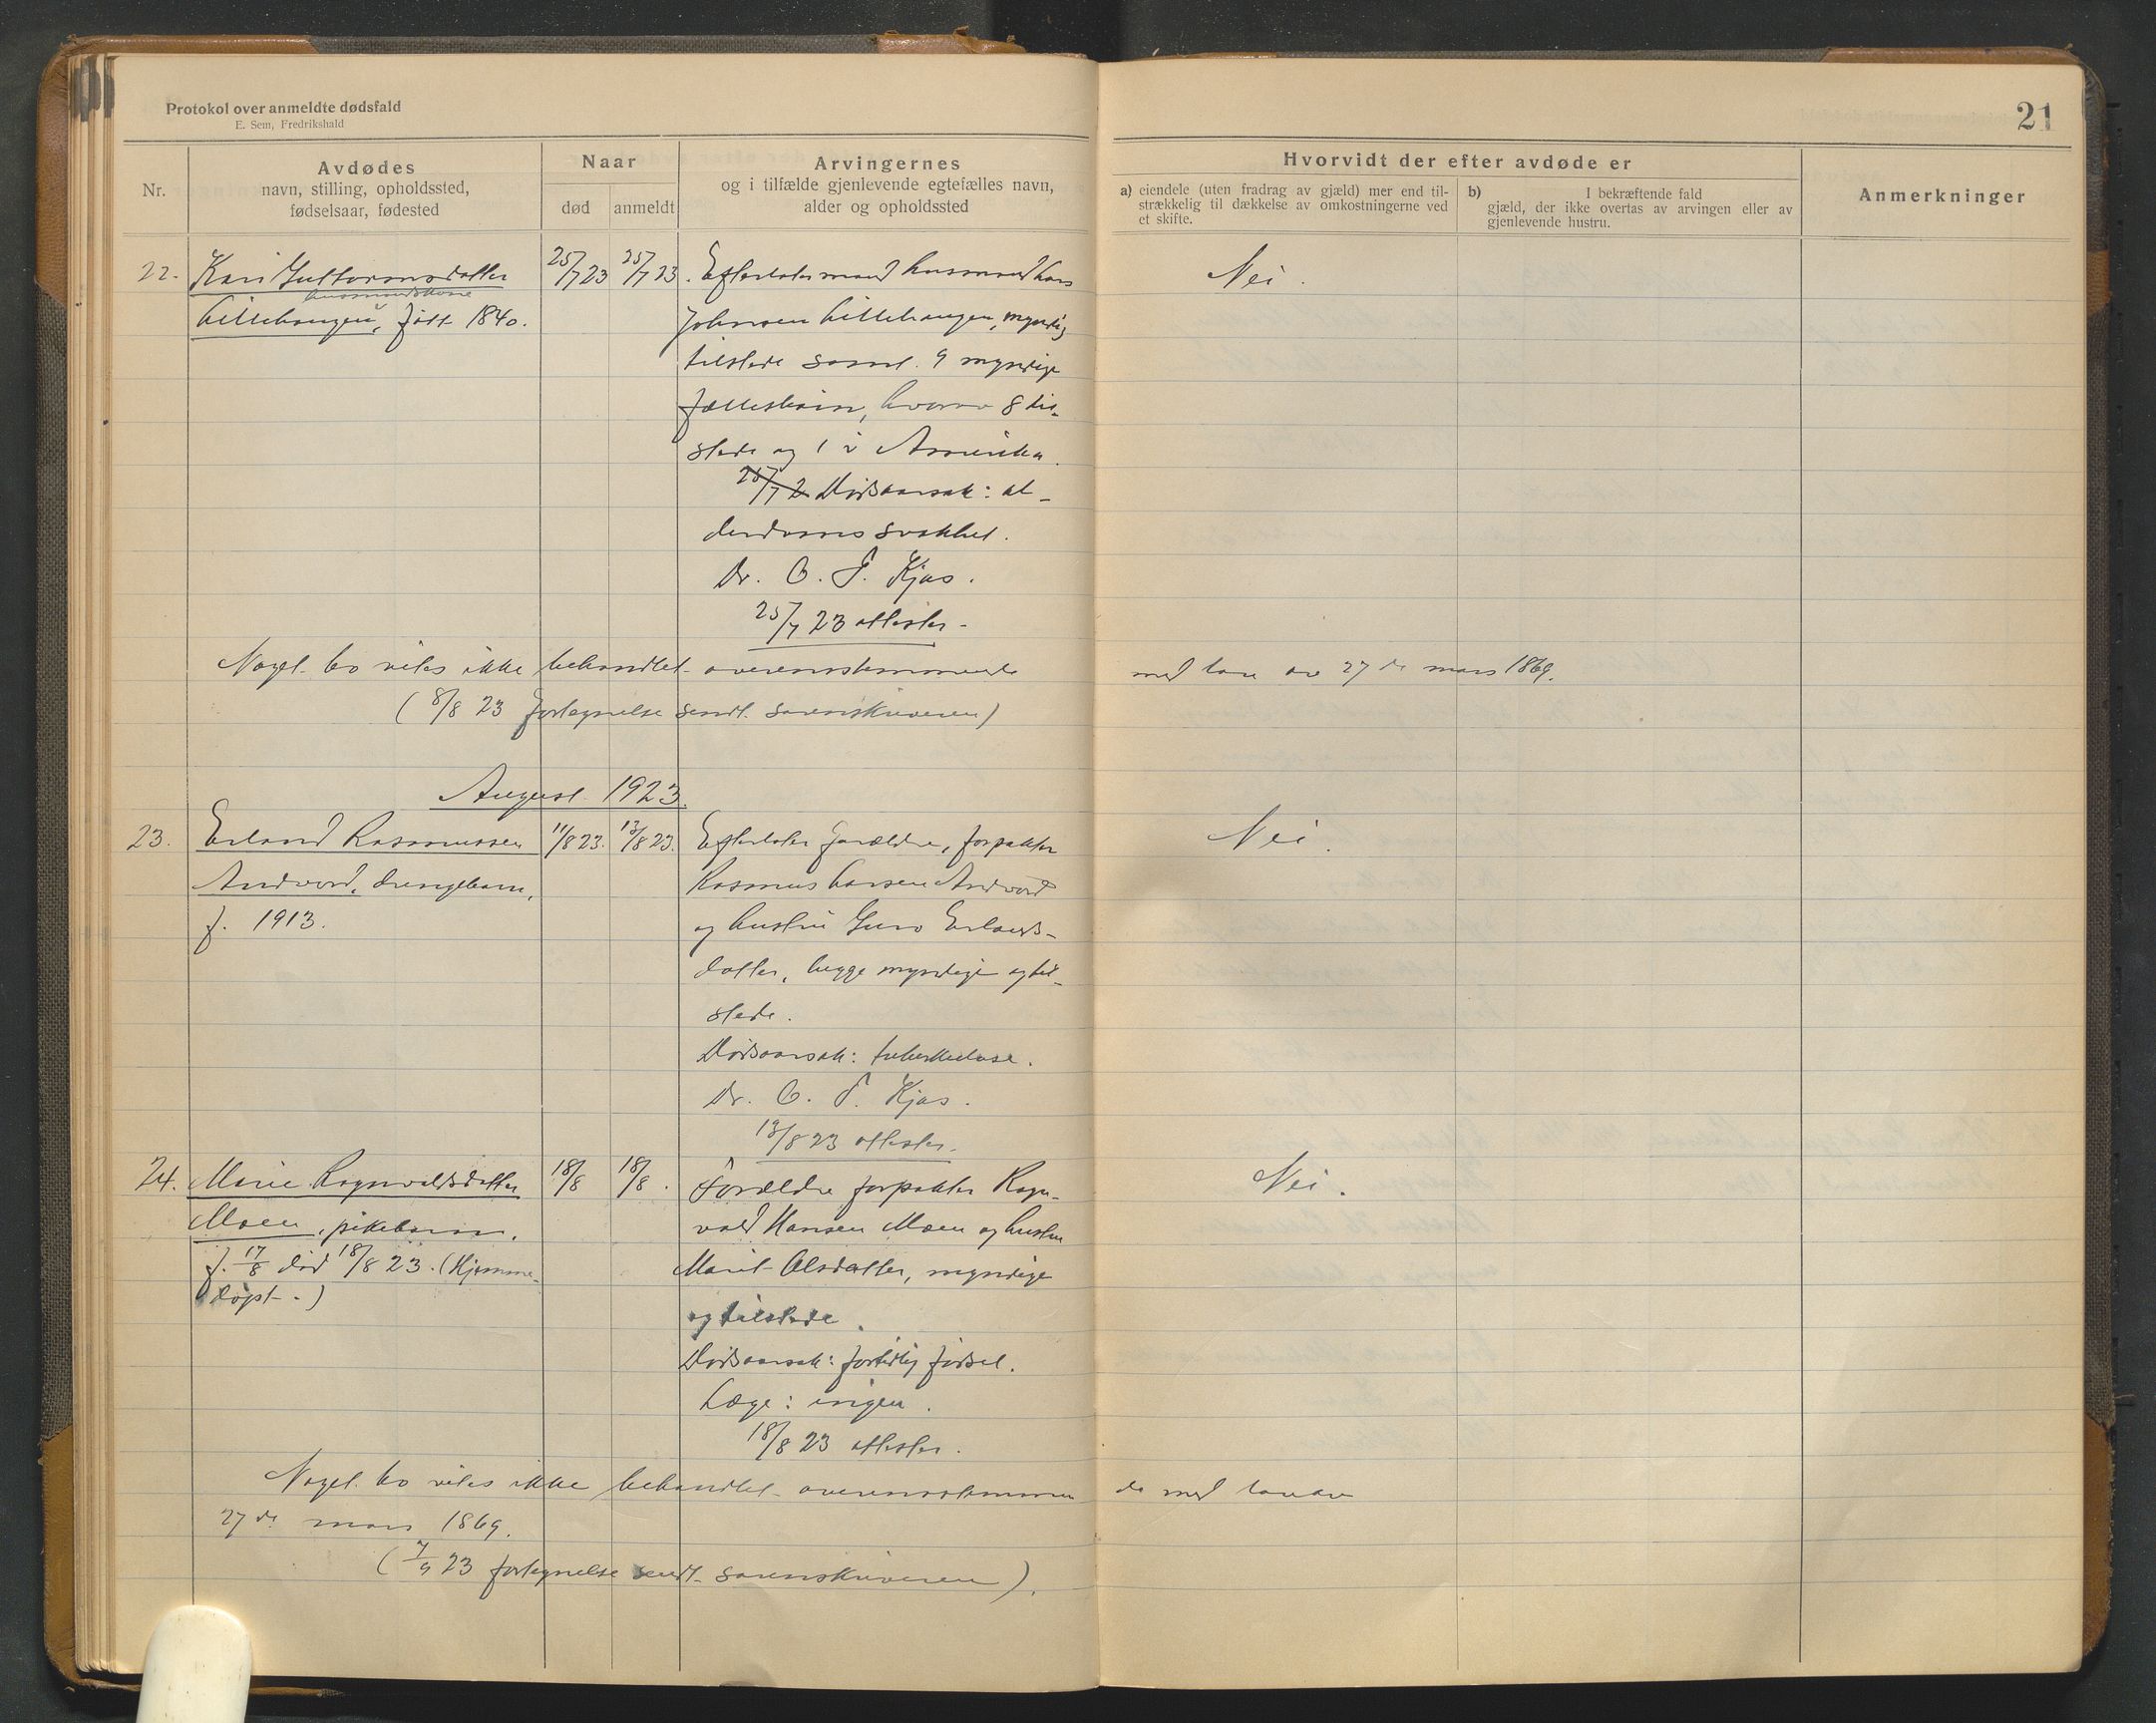 Protokol over anmeldte dødsfald
E. Sem, Fredrikshald
21
Nr.
Avdødes
navn, stilling, opholdssted,
fødselsaar, fødested
Naar
død
anmeldt
Arvingernes
og i tilfælde gjenlevende egtefælles navn,
alder og opholdssted
Hvorvidt der efter avdøde er
a) eiendele (uten fradrag av gjæld) mer end til-
strækkelig til dækkelse av omkostningerne ved
et skifte.
b) I bekræftende fald
gjæld, der ikke overtas av arvingen eller av
gjenlevende hustru.
Anmerkninger
22.
Kari Guttormsdatter
husmandskone
Lillehaugen, født 1840.
25/7 23
25/7 23.
Efterlater mand husmand Lars
Johnsen Lillehaugen, myndig
tilstede samt 9 myndige
fællesbørn, hvorav 8 til-
stede og 1 i Amerika.
25/7 2 Dødsaarsak: al-
derdomssvakhet.
Dr. O. F. Kjos.
25/7 23 attester.
Nei.
Noget bo vites ikke behandlet overensstemmende med love av 27de mars 1869.
(8/8 23 fortegnelse sendt sorenskriveren)
August 1923.
23.
Erland Rasmussen
Andvord, drengebarn,
f. 1913.
11/8 23.
13/8 23.
Efterlater forældre, forpakter
Rasmus Larsen Andvord
og hustru Guro Erlands-
datter, begge myndige og til-
stede.
Dødsaarsak: tuberkulose.
Dr. O. F. Kjos.
13/8 23 attester.
Nei.
24.
Marie Ragnvaldsdatter
Moen, pikebarn,
f. 17/8 død 18/8 23. (Hjemme-
døpt.)
18/8
18/8.
Forældre forpakter Ragn-
vald Hansen Moen og hustru
Marit Olsdatter, myndige
og tilstede.
Dødsaarsak: fortidlig fødsel.
Læge: ingen.
18/8 23 attester.
Nei.
Noget bo vites ikke behandlet overensstemmen de med lov av
27de mars 1869.
(7/9 23 fortegnelse sendt sorenskriveren).